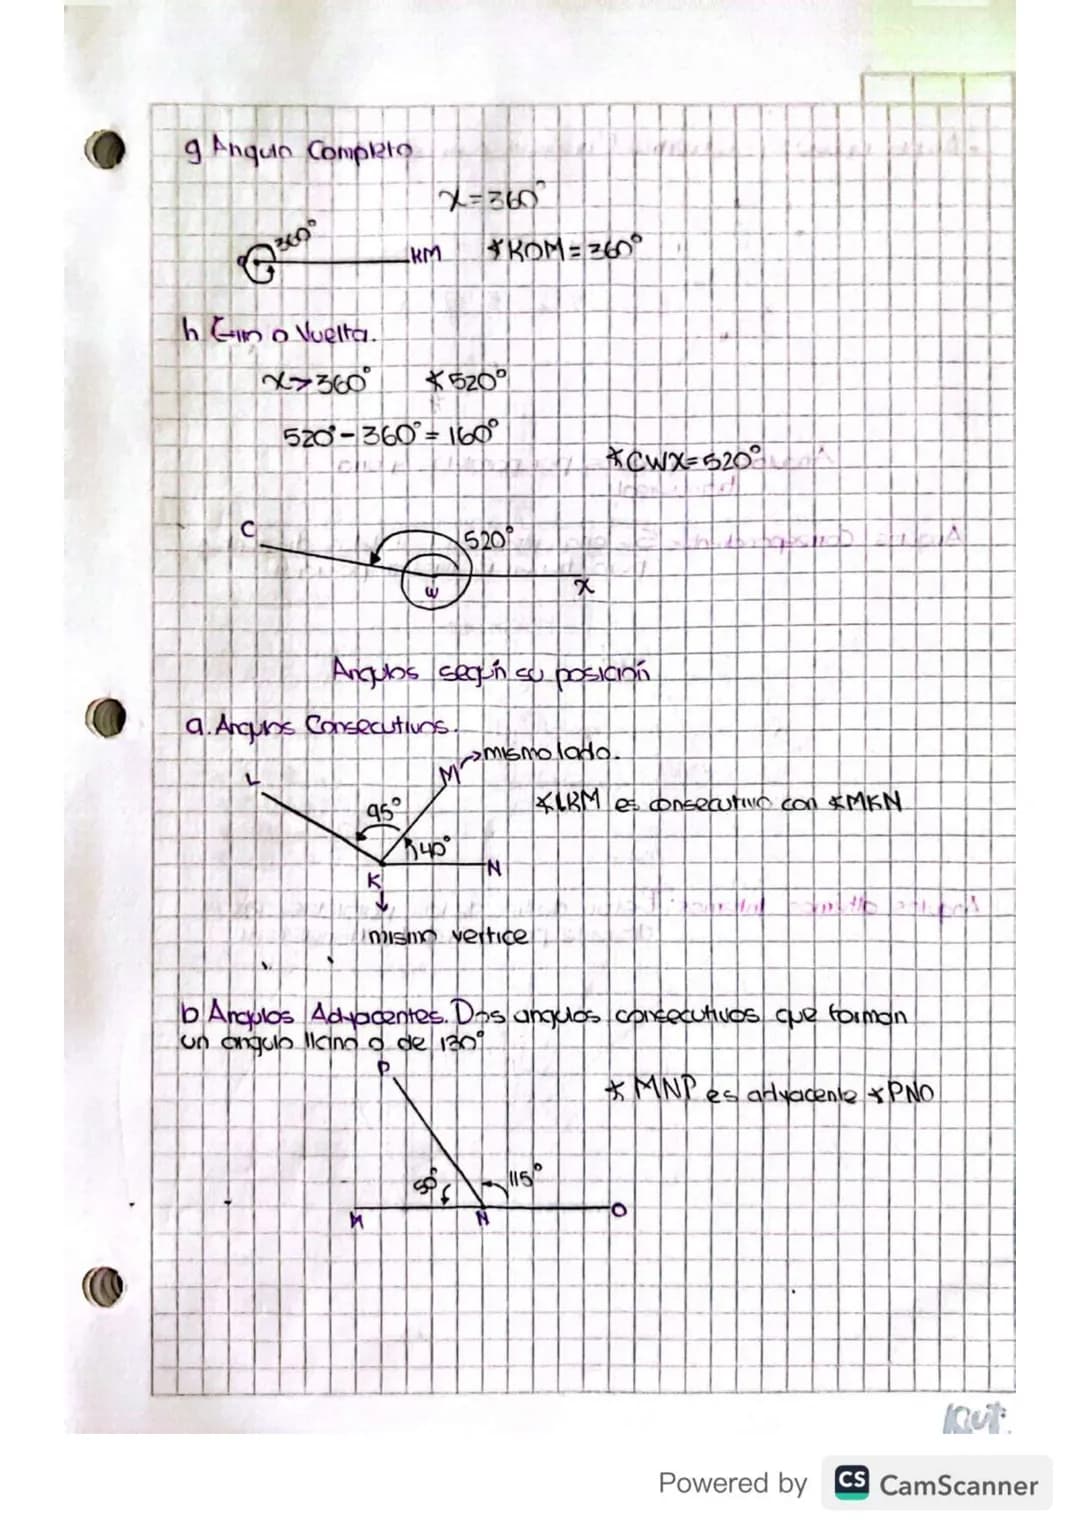 g Angulo Completo
x=360°
360°
KM
∡KOM=360°
h Giro o Vuelta.
x>360° ∡520°
520°-360°=160°
∡CWX=520°
C
520°
W
X
Angulos según su posición
a. Angulos Consecutivos.
M →mismo lado.
L
95°
∡LKM es consecutivo con ∡MKN
40°
N
K
mismo vertice
b Angulos Adyacentes. Dos angulos consecutivos que forman
un angulo llano o de 180°
P
∡MNP es adyacente ∡PNO
115°
M
N
O
Powered by CS CamScanner